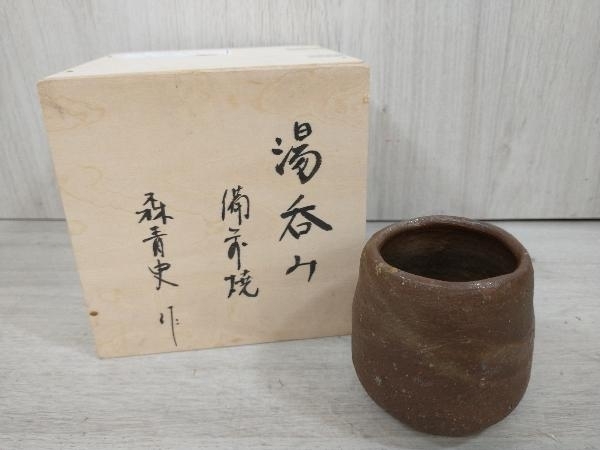 湯呑み
備前焼
森青史 作